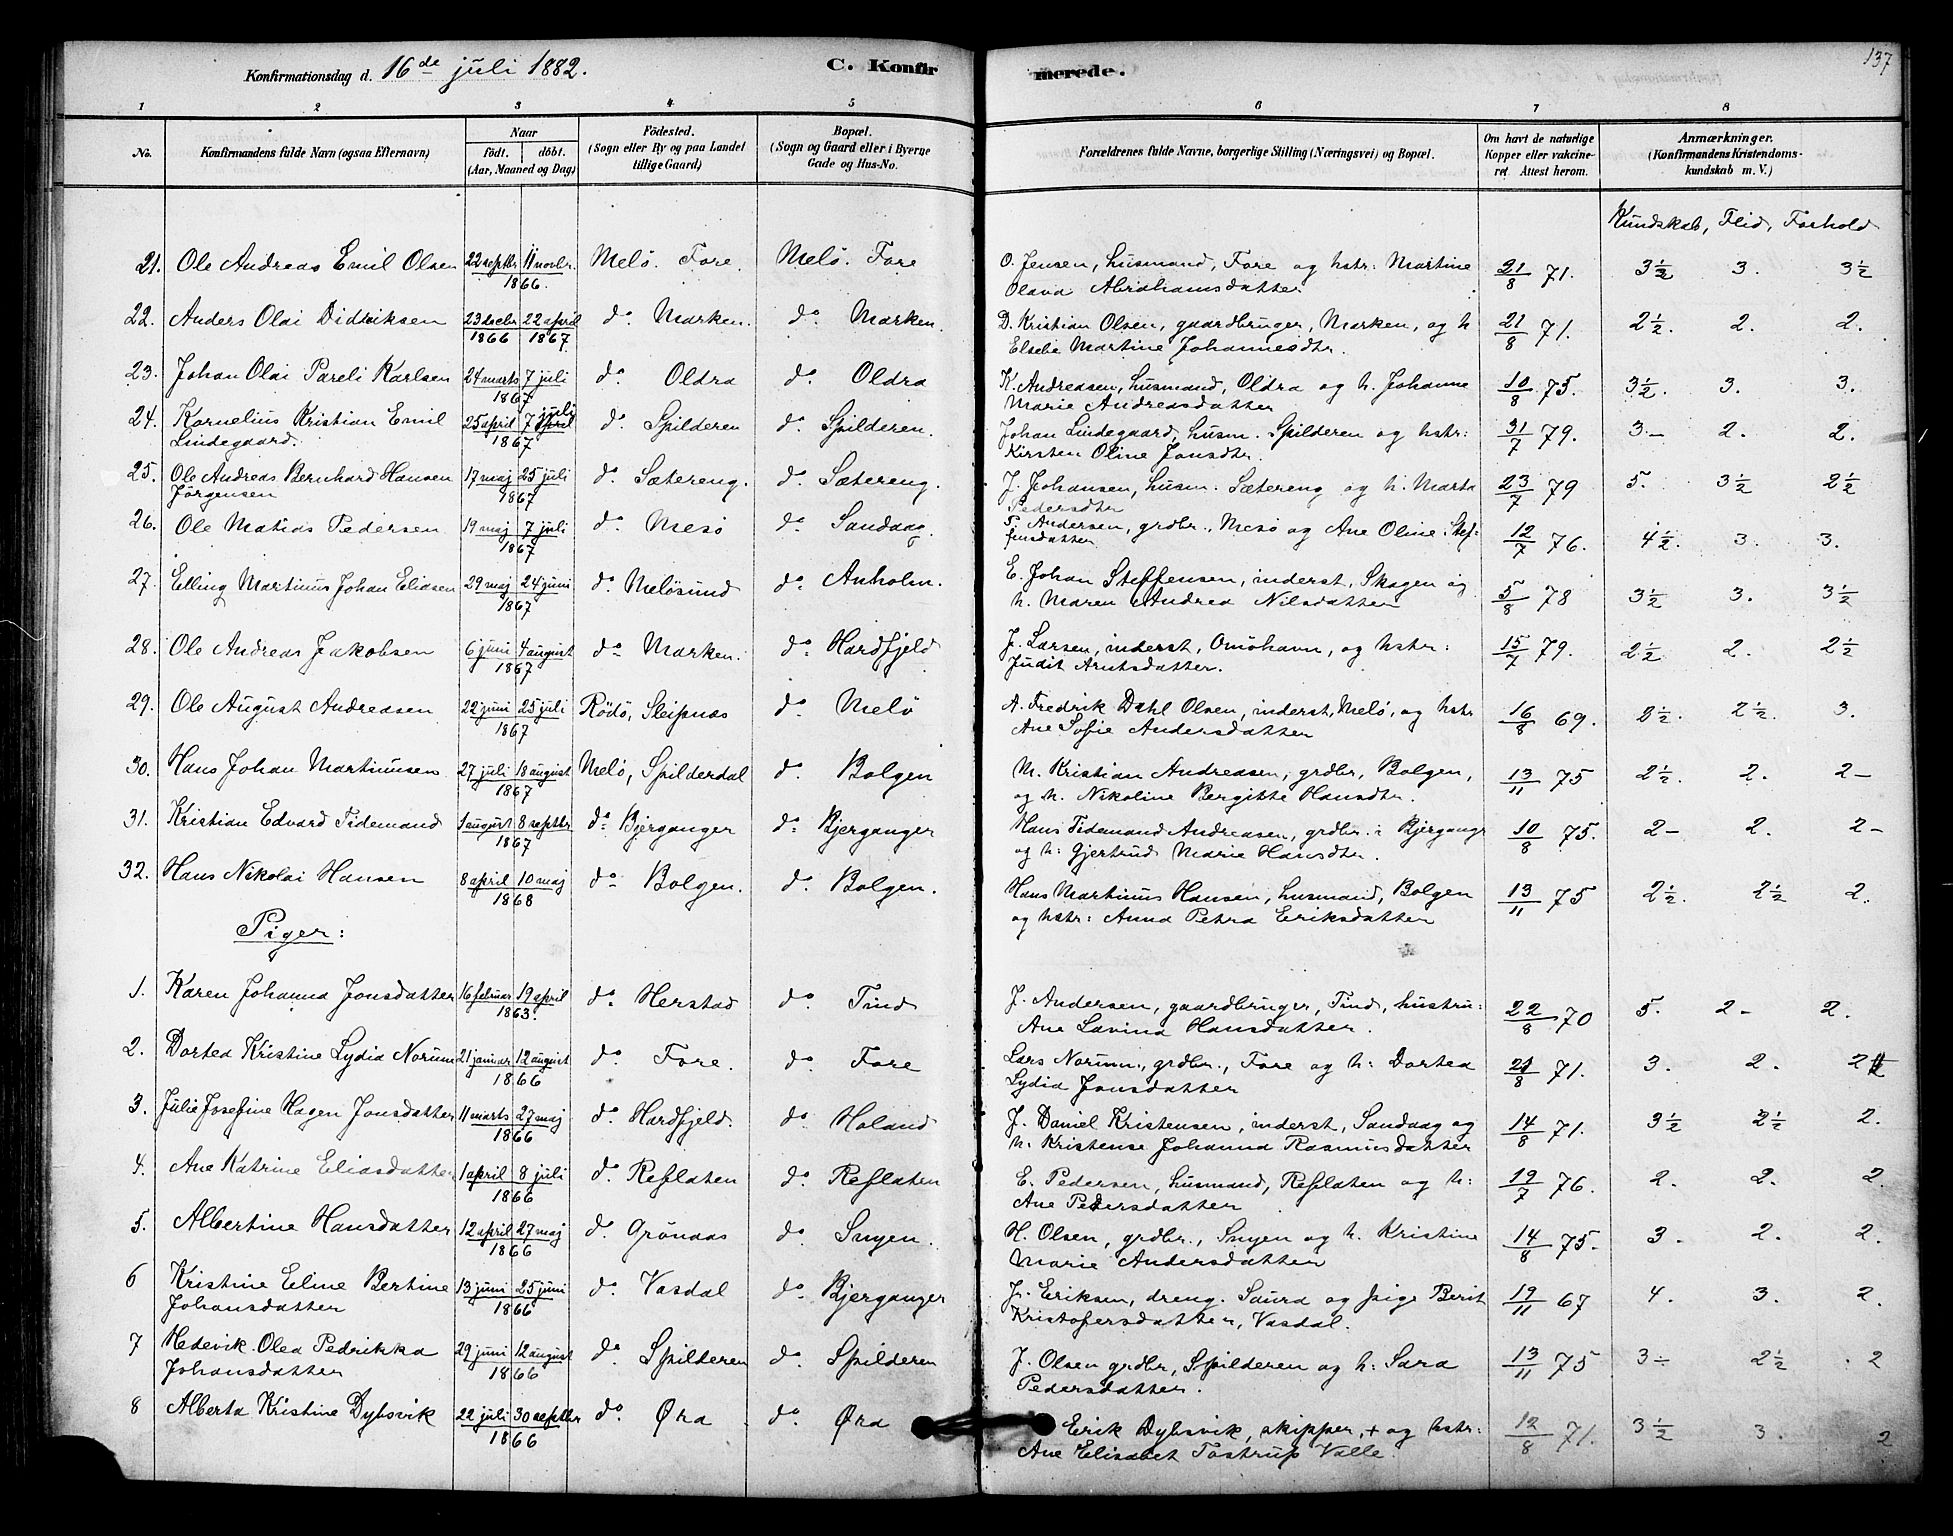 137
Konfirmationsdag d. 16de juli 1882. C. Konfirmerede.
1 2 3 4 5 6 7 8
No. Konfirmandens fulde Navn (ogsaa Efternavn) Naar födt. döbt. (Aar, Maaned og Dag) Födested. (Sogn eller By og paa Landet tillige Gaard) Bopæl. (Sogn og Gaard eller i Byerne Gade og Hus-No. Forældrenes fulde Navne, borgerlige Stilling (Næringsvei) og Bopæl. Om havt de naturlige Kopper eller vakcineret. Attest herom. Anmærkninger. (Konfirmandens Kristendomskundskab m. V.)
Kundskab, Flid, Forhold
21. Ole Andreas Emil Olsen 22 septbr 11 novbr. 1866. Melö. Fore. Melö. Fore O. Jensen, husmand, Fore og hstr: Martine Olava Abrahamsdatter 21/8 71. 3½ 3. 3½
22. Anders Olai Didriksen 23 decbr 1866 22 april 1867 do Marken. do Marken. D. Kristian Olsen, gaardbruger, Marken, og h Elsebe Martine Johannesdtr. 21/8 71. 2½. 2. 2.
23. Johan Olai Pareli Karlsen 24 marts 7 juli 1867 do Oldra do Oldra K. Andreasen, husmand, Oldra og h. Johanne Marie Andreasdatter 10/8 75. 3½. 3. 3.
24. Kornelius Kristian Emil Lindegaard. 25 april 7 april juli 1867 do Spilderen do Spilderen. Johan Lindegaard, husm. Spilderen og hstr: Kirsten Oline Jonsdtr. 31/7 79. 3.- 2. 2.
25. Ole Andreas Bernhard Hansen Jörgensen 17 maj 25 juli 1867 do Sætereng. do Sætereng. J. Johansen, husm. Sætereng og h. Marta Pedersdtr 23/7 79 5. 3½ 2½
26. Ole Matias Pedersen 19 maj 7 juli 1867 do Mesö do Sandaag. P. Andersen, grdbr., Mesö og Ane Oline Steffensdatter 12/7 76. 4½. 3. 3.
27. Elling Martinus Johan Eliasen 29 maj 24 juni 1867 do Melösund do Anholm. E. Johan Steffensen, inderst, Skagen og h. Maren Andrea Nilsdatter 5/8 78 3½ 3. 3½
28. Ole Andreas Jakobsen 6 juni 4 august 1867 do Marken. do Hardfjeld J. Larsen, inderst, Omöhavn, og hstr: Judit Arntsdatter. 15/7 79. 2½ 2. 2½
29. Ole August Andreasen 22 juni 25 juli 1867 Rödö, Sleipnæs do Melö A. Fredrik Dahl Olsen, inderst, Melö, og hstr Ane Sofie Andersdatter 16/8 69. 2½. 2½. 3.
30. Hans Johan Martinusen 27 juli 18 august 1867 Melö, Spilderdal do Bolgen M. Kristian Andreasen, grdbr, Bolgen, og h. Nikoline Bergitte Hansdtr. 13/11 75 2½. 2. 2-
31. Kristian Edvard Tidemand 1 august 8 septbr 1867 do Bjerganger do Bjerganger Hans Tidemand Andreasen, grdbr. i Bjerganger og h: Gjertrud Marie Hansdtr. 10/8 75. 2- 2. 2-
32. Hans Nikolai Hansen 8 april 10 maj 1868 do Bolgen. do Bolgen. Hans Martinus Hansen, husmand, Bolgen og hstr: Anna Petra Eriksdatter 13/11 75 2½. 2½ 2.
Piger:
1. Karen Johanna Jonsdatter 16 februar 19 april 1863. do Herstad do Tind J. Andersen, gaardbruger, Tind, hustru: Ane Lavina Hansdatter. 22/8 70 5. 2- 2.
2. Dortea Kristine Lydia Norum 21 januar 12 august 1866 do Fore. do Fore Lars Norum, grdbr., Fore og h: Dortea Lydia Jonsdatter 21/8 71. 3. 2. 2
3. Julie Josefine Hagen Jonsdatter 11 marts 27 maj 1866 do Hardfjeld. do Holand J. Daniel Kristensen, inderst, Sandaag og h. Kristense Johanna Rasmusdatter 14/8 71. 3½ 2½ 2.
4. Ane Katrine Eliasdatter 1 april 8 juli 1866 do Reflaten do Reflaten E. Pedersen, husmand, Reflaten og h: Ane Pedersdatter 19/7 76. 2. 2. 2.
5. Albertine Hansdatter 12 april 27 maj 1866 do Grönaas do Snyen. H. Olsen, grdbr., Snyen og h. Kristine Marie Andersdatter 14/8 75. 3. 2. 2.
6 Kristine Eline Bertine Johansdatter 13 juni 25 juni 1866 do Vasdal do Bjerganger J. Eriksen, dreng. Saura og pige Berit Kristofersdatter, Vasdal. 19/11 67 4. 3. 2.
7 Hedevik Olea Pedrikka Johansdatter 29 juni 12 august 1866 do Spilderen do Spilderen J. Olsen grdbr, Spilderen og h: Sara Pedersdatter. 13/11 75 3- 2½ 2
8 Alberta Kristine Dybsvik 22 juli 30 septbr 1866 do Øra do Øra Erik Dybsvik, skipper, + og hstr: Ane Elisabet Tostrup Valle. 12/8 71. 3½ 3. 2